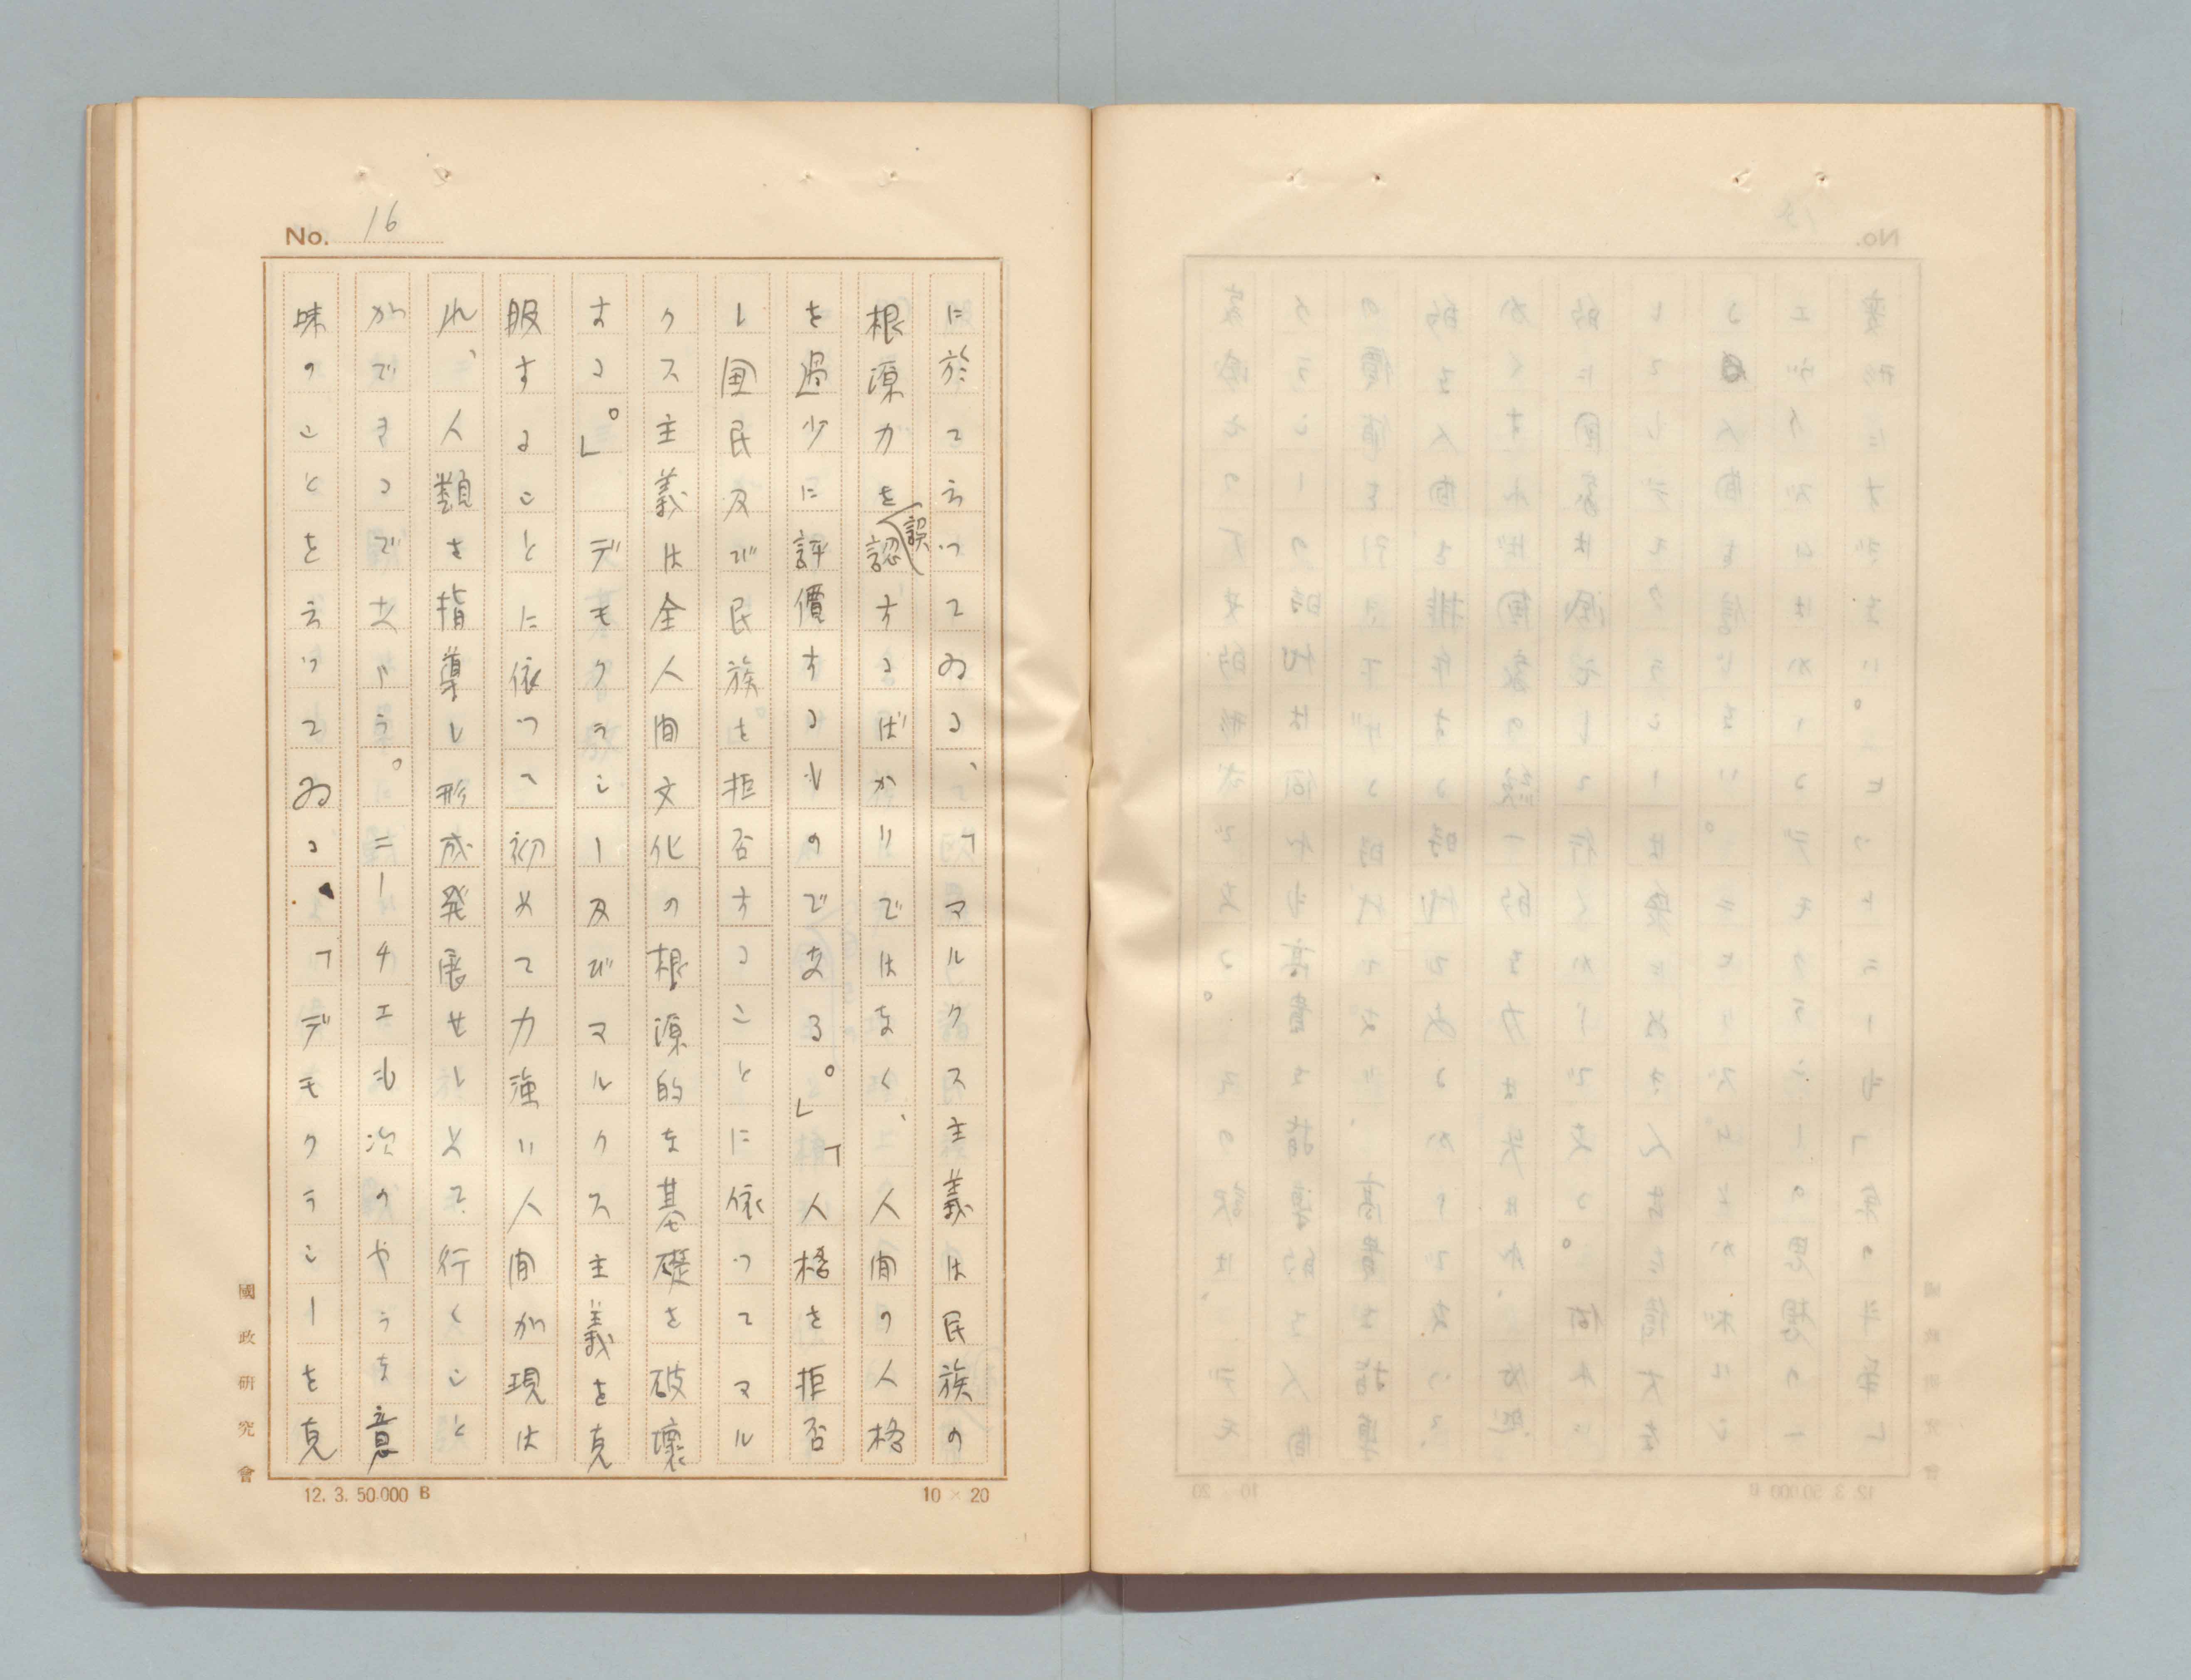 No. 16
に於て云つてゐる、「マルクス主義は民族の
根源力を誤認するばかりではなく、人間の人格
を過少に評價するものである。」「人格を拒否
し国民及び民族を拒否することに依つてマル
クス主義は全人間文化の根源的な基礎を破壊
する。」デモクラシー及びマルクス主義を克
服することに依つて初めて力強い人間が現は
れ、人類を指導し形成発展せしめて行くこと
ができるであらう。ニーチエも次のやうな意
味のことを云つてゐる、「デモクラシーを克
國政研究會
12. 3. 50.000 B
10 × 20